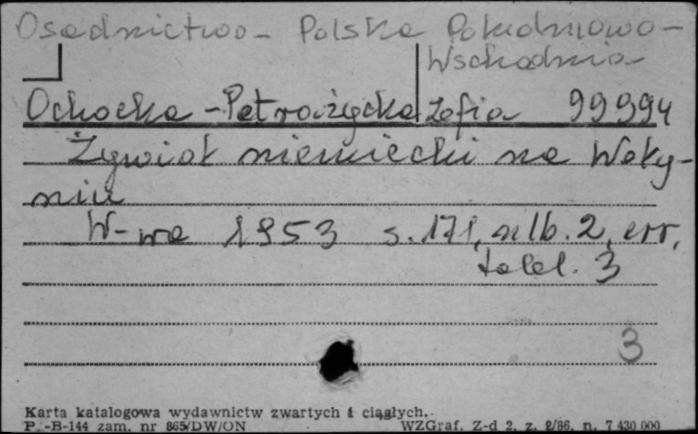 Osadnictwo - Polska Południowo-
Wschodnia
Ochocka-Petrażycka Zofia 99994
Żywioł niemiecki na Wołyniu
W-wa 1953 s. 171, nlb. 2, err.
tabl. 3
3
Karta katalogowa wydawnictw zwartych i ciągłych.
P.-B-144 zam. nr 865/DW/ON WZGraf. Z-d 2. z. 2/86. n. 7 430 000